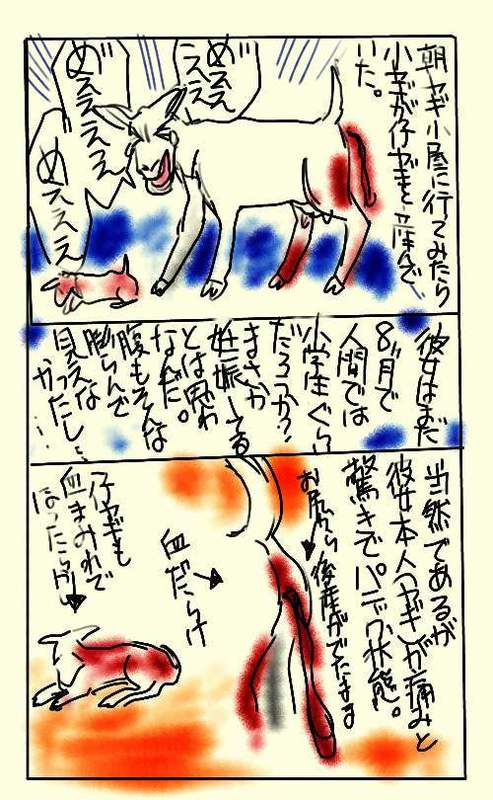 朝ヤギ小屋に行ってみたら
小ヤギが仔ヤギを産んで
いた。
めええ
ええええ
めええ
ええええ
めえええ
彼女はまだ
8ヶ月で
人間では
小学生ぐらい
だろうか?
まさか
妊娠してる
とは思わ
なんだ。
腹もそんな
膨らんで
見えな
かったし…
…
当然であるが
彼女本人(ヤギ)が痛みと
驚きでパニック状態。
お尻から後産がでたまま
血だらけ
仔ヤギも
血まみれで
ほったらかし